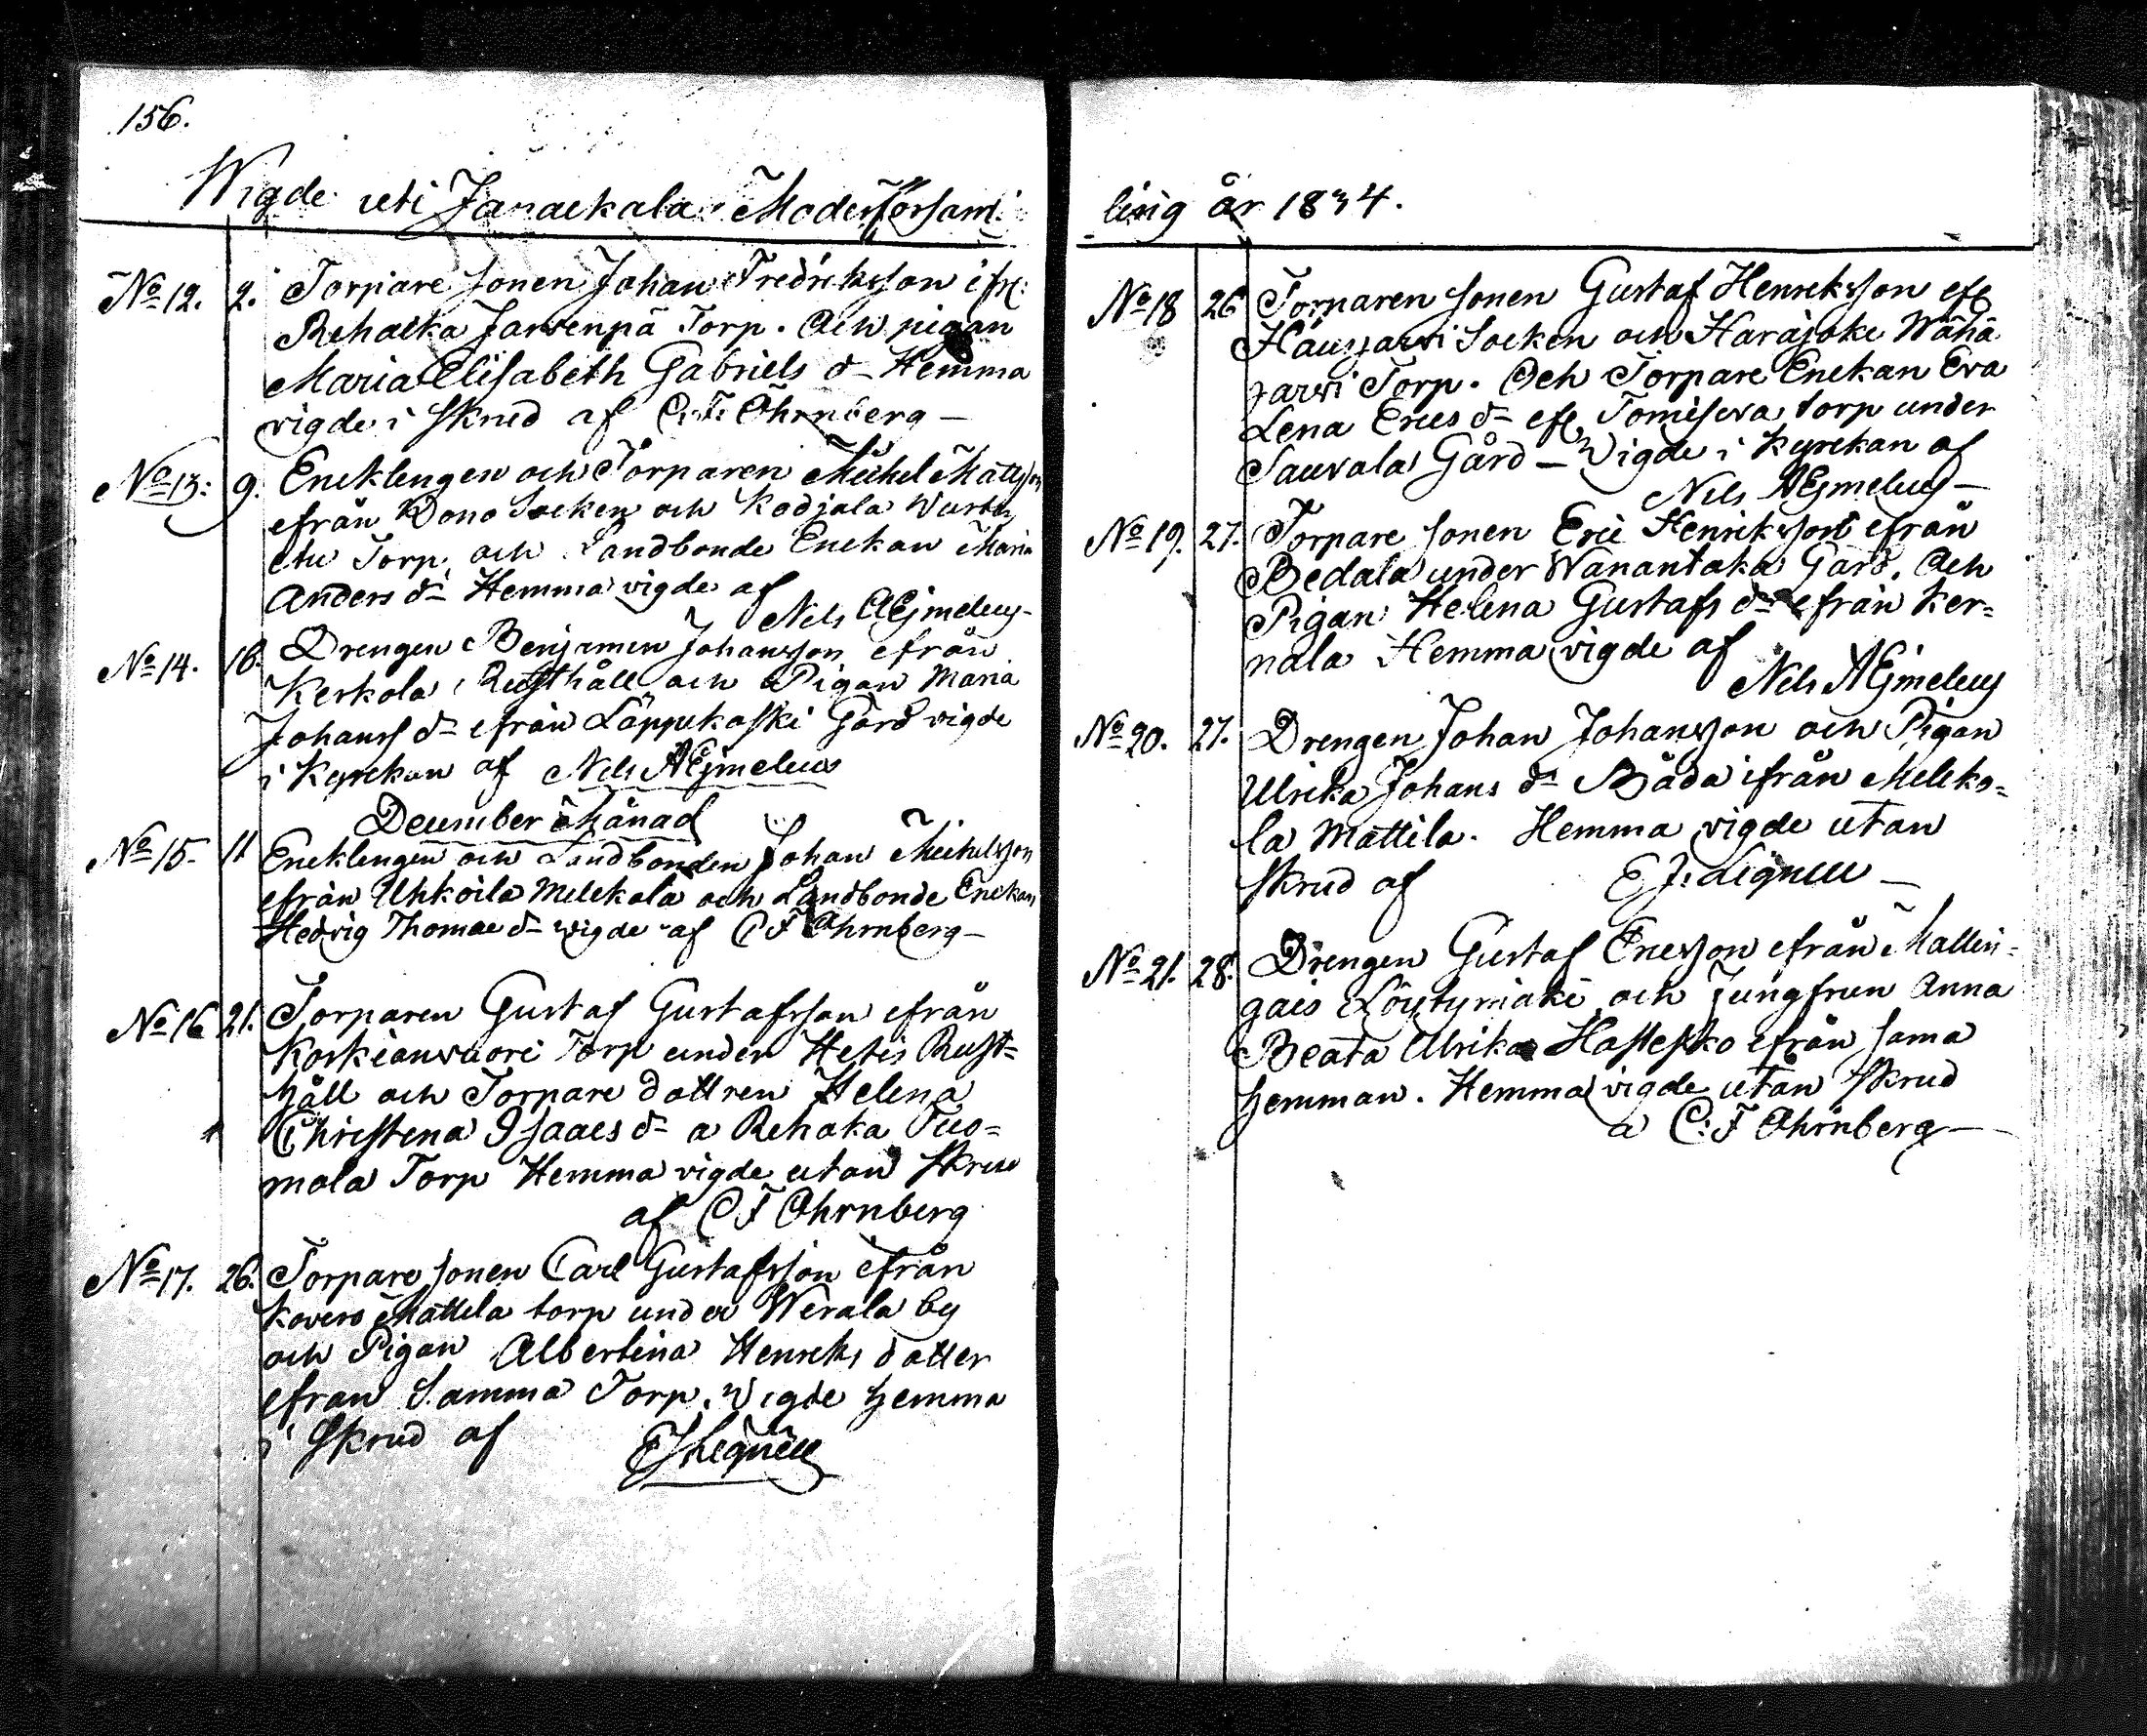 156.
Wigde uti Janackala Moderförsam-
No 12. 2. Torpare Sonen Johan Fredriksson ifr:
Rehacka Jarvenpä Torp. Och pigan
Maria Elisabeth Gabriels dr Hemma
vigde i Skrud af C. F. Öhrnberg —
No 13: 9. Encklingen och Torparen Michel Mattsson
ifrån Kono Socken och Kodjala
Torp, och Landbonde Enckan Maria
Anders dr Hemma vigde af
Nils AEjmeleus -
No 14. 16. Drengen Benjamin Johansson ifrån
Kerkola Rusthåll och Pigan Maria
Johans dr ifrån Läppikoski Gård vigde
i Kyrckan af Nils AEjmeleus
December Månad
No 15. 11 Encklingen och Landbonden Johan Michelsson
ifrån Uhkoila Melckola och Landbonde Enckan
Hedvig Thomae dr vigde af C F Öhrnberg —
No 16 21. Torparen Gustaf Gustafsson ifrån
Koskianvuori Torp under Hetis Rust-
håll och Torpare dottren Helena
Christina Isaacs dr a Rehaka Tuo-
mola Torp Hemma vigde utan Skrud
af C F Öhrnberg
No 17. 26. Torpare Sonen Carl Gustafsson ifrån
Kovero Mattila torp under Wirala by
och Pigan Albertina Henriks dotter
ifran Samma Torp. Wigde hemma
i Skrud af EJ Lignell
ling år 1834.
No 18 26 Torparen Sonen Gustaf Henriksson ifr
Hausjarvi Socken och Harajoki Wähä
jarvi Torp. Och Torpare Enckan Eva
Lena Erics dr ifr Tomiseva torp under
Sauvala Gård — Wigde i Kyrckan af
Nils AEjmeleus —
No 19. 27. Torpare Sonen Eric Henriksson ifrån
Bedala under Wanantaka Gård. Och
Pigan Helena Gustafs dr ifrån Ker-
nala Hemma vigde af
Nils AEjmeleus
No 20. 27. Drengen Johan Johansson och Pigan
Ulrika Johans dr Båda ifrån Melko-
la Mattila. Hemma vigde utan
Skrud af E J: Lignell —
No 21. 28. Drengen Gustaf Ericsson ifrån Mallin-
gais Löytymäki och Jungfrun Anna
Beata Ulrika Hastesko ifrån sama
hemman. Hemma vigde utan Skrud
a C: F Öhrnberg —